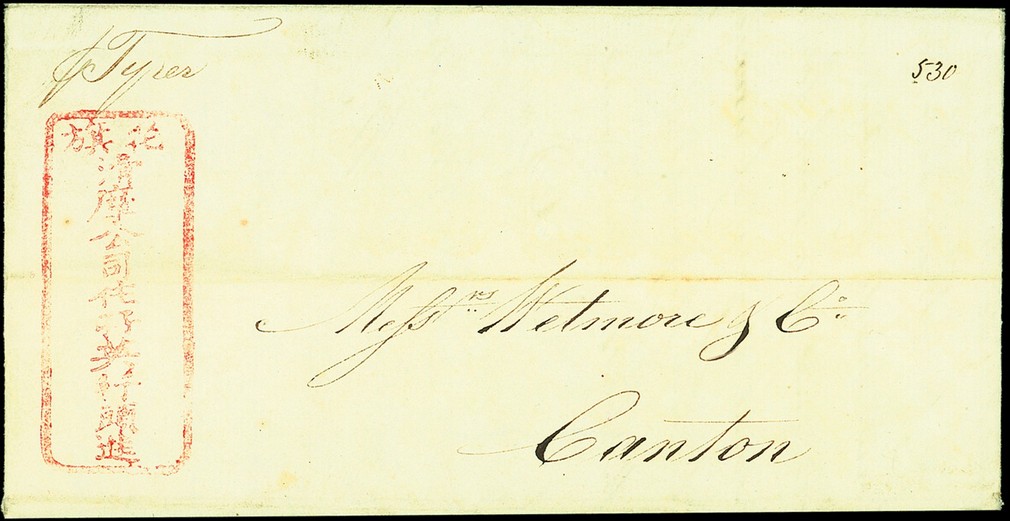 p Tyrer
530
花旗
摩公司
Messrs Wetmore & Co.
Canton